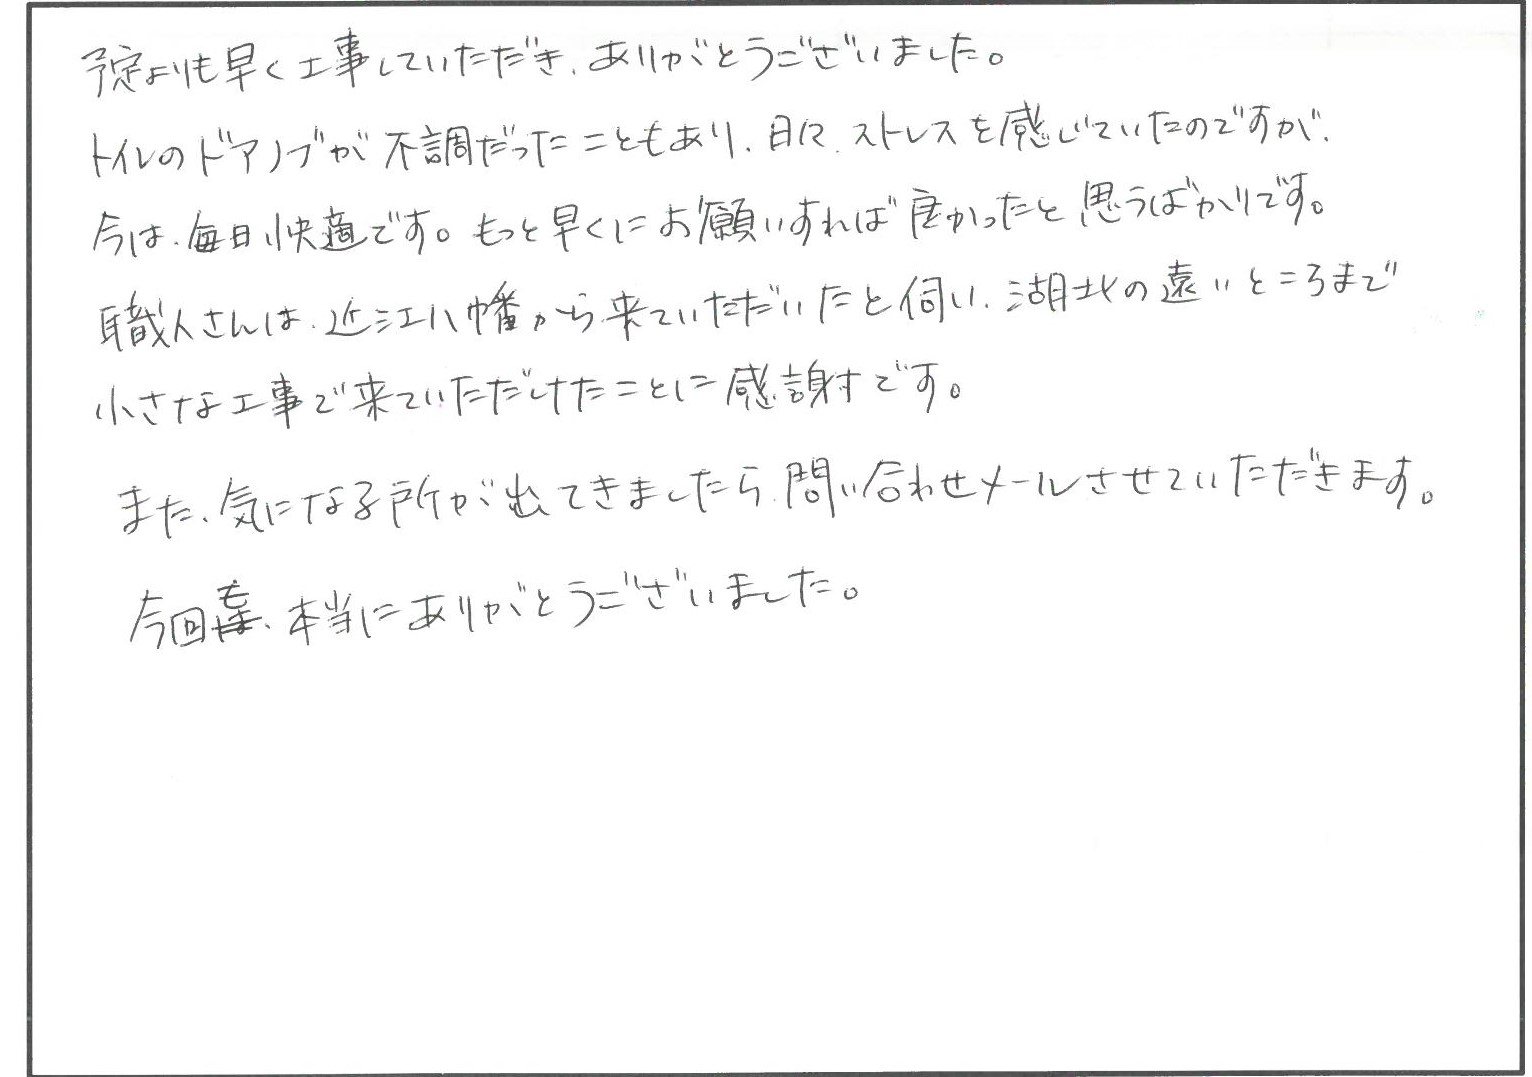 予定よりも早く工事していただだき、ありがとうございました。
トイレのドアノブが不調だったこともあり、日々、ストレスを感じていたのですが、
今は、毎日快適です。もっと早くにお願いすれば良かったと思うばかりです。
職人さんは、近江八幡から来ていただいたと伺い、湖北の遠いところまで
小さな工事で来ていただけたことに感謝です。
また、気になる所が出てきましたら、問い合わせメールさせていただきます。
今回も、本当にありがとうございました。